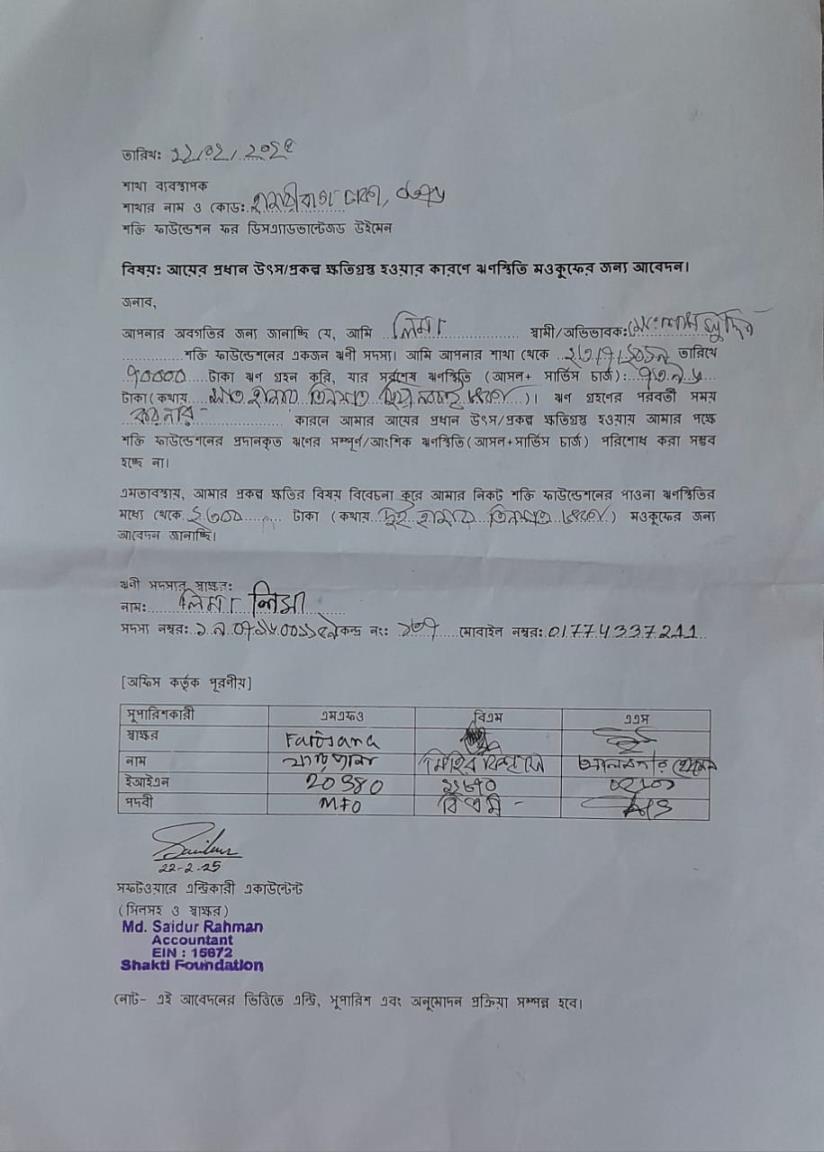 তারিখ: ১২/০২/২০২৫
শাখা ব্যবস্থাপক
শাখার নাম ও কোড:
শক্তি ফাউন্ডেশন ফর ডিসএ্যাডভান্টেজড উইমেন
বিষয়: আয়ের প্রধান উৎস/প্রকল্প ক্ষতিগ্রস্থ হওয়ার কারণে ঋণস্থিতি মওকুফের জন্য আবেদন।
জনাব,
আপনার অবগতির জন্য জানাচ্ছি যে, আমি লিমা স্বামী/অভিভাবক:
শক্তি ফাউন্ডেশনের একজন ঋণী সদস্য। আমি আপনার শাখা থেকে তারিখে
৭০০০০ টাকা ঋণ গ্রহন করি, যার সর্বশেষ ঋণস্থিতি (আসল+ সার্ভিস চার্জ):
টাকা(কথায় )। ঋণ গ্রহণের পরবর্তী সময়
কারনে আমার আয়ের প্রধান উৎস/প্রকল্প ক্ষতিগ্রস্থ হওয়ায় আমার পক্ষে
শক্তি ফাউন্ডেশনের প্রদানকৃত ঋণের সম্পূর্ণ/আংশিক ঋণস্থিতি(আসল+সার্ভিস চার্জ) পরিশোধ করা সম্ভব
হচ্ছে না।
এমতাবস্থায়, আমার প্রকল্প ক্ষতির বিষয় বিবেচনা করে আমার নিকট শক্তি ফাউন্ডেশনের পাওনা ঋণস্থিতির
মধ্যে থেকে ২৩০০ টাকা (কথায় দুই হাজার তিনশত ) মওকুফের জন্য
আবেদন জানাচ্ছি।
ঋণী সদস্যর স্বাক্ষর:
নাম: লিমা লিমা
সদস্য নম্বর: কেন্দ্র নং: মোবাইল নম্বর: 01774337211
[অফিস কর্তৃক পূরণীয়]
সুপারিশকারী এমএফও বিএম এএস
স্বাক্ষর Farjana
নাম ফারজানা
ইআইএন 20380
পদবী MFO বিএম AS
22-2-25
সফটওয়ারে এন্ট্রিকারী একাউন্টেন্ট
(সিলসহ ও স্বাক্ষর)
Md. Saidur Rahman
Accountant
EIN : 15672
Shakti Foundation
নোট- এই আবেদনের ভিত্তিতে এন্ট্রি, সুপারিশ এবং অনুমোদন প্রক্রিয়া সম্পন্ন হবে।